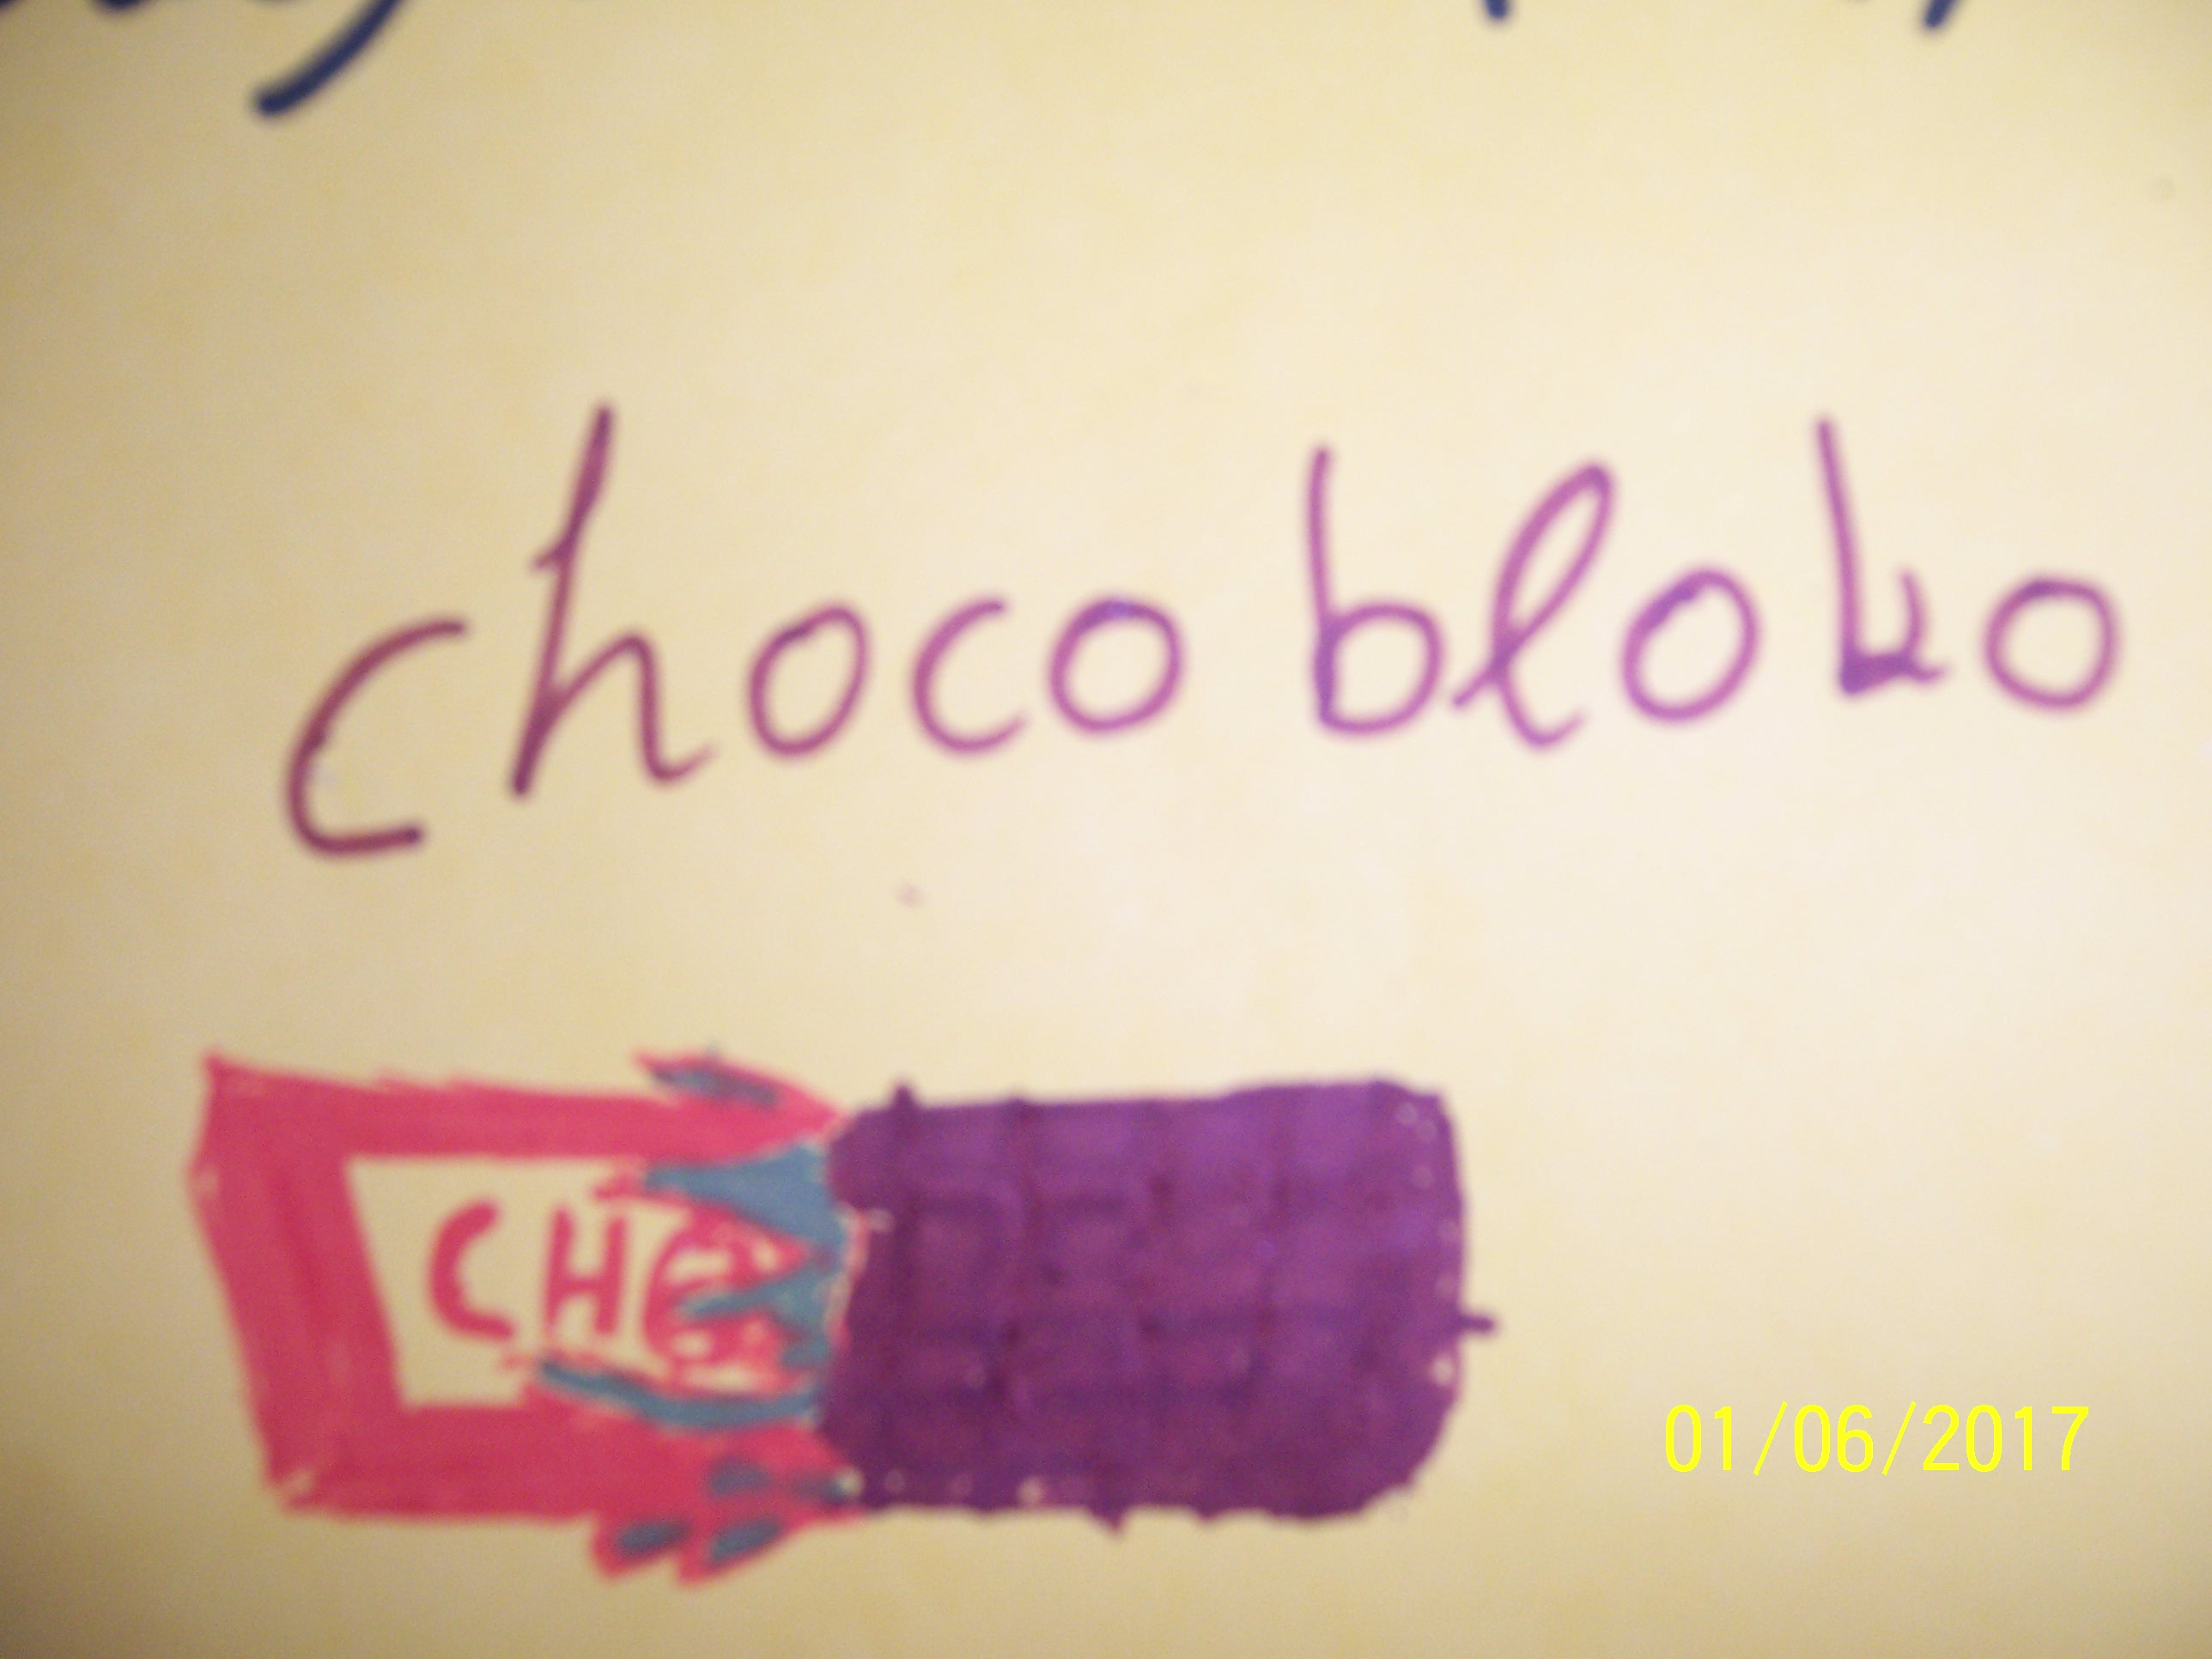 choco bloko
CHO
01/06/2017